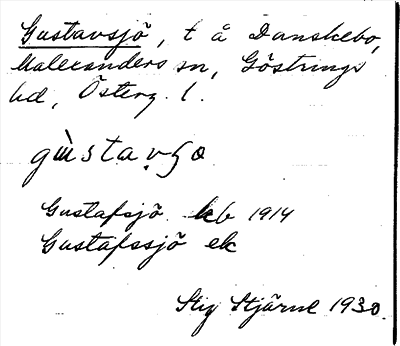 Gustavsjö, t å Danskebo,
Malexanders sn, Göstrings
hd, Österg. l.
gùstavʒo
Gustafsjö kb 1914
Gustafssjö ek
Stig Stjärne 1930.